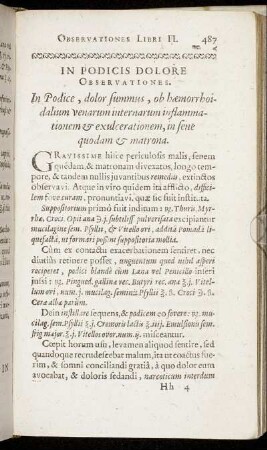 OBSERVATIONES LIBRI II. 487
IN PODICIS DOLORE
OBSERVATIONES.
In Podice, dolor summus, ob hæmorrhoi-
dalium venarum internarum inflamma-
tionem & exulcerationem, in sene
quodam & matrona.
GRAVISSIME hisce periculosis malis, senem
quendam, & matronam divexatos, longo tem-
pore, & tandem nullis juvantibus remediis, extinctos
observavi. Atque in viro quidem ita afflicto, diffici-
lem fore curam, pronunciavi, quæ sic fuit instituta.
Suppositorium primò fuit inditum: ꝶ. Thuris. Myr-
rhæ. Croci. Opii ana ʒ.j. subtiliss. pulverisata excipiantur
mucilagine sem. Psyllii, & Vitello ovi, additâ pomadâ li-
quefactâ, ut formari possint suppositoria mollia.
Cùm ex contactu exacerbationem sentiret, nec
diutiùs retinere posset, unguentum quod nihil asperi
reciperet, podici blandè cum Lana vel Penicillo inseri
jussi: ꝶ. Pingued. gallinæ rec. Butyri rec. ana ℥.j. Vitel-
lum ovi. num. j. mucilag. seminis Psyllii ℥.ß. Croci ℈.ß.
Ceræ albæ parùm.
Dein instillare sequens, & podicem eo fovere: ꝶ. mu-
cilag. sem. Psyllii ℥.j. Cremoris lactis ℥.iiij. Emulsionis sem.
frig. major. ℥.j. Vitellos ovor. num. ij. misceantur.
Cœpit horum usu, levamen aliquod sentire, sed
quandoque recrudescebat malum, ita ut coactus fue-
rim, & somni conciliandi gratiâ, à quo dolor eum
avocabat, & doloris sedandi, narcoticum interdum
Hh 4